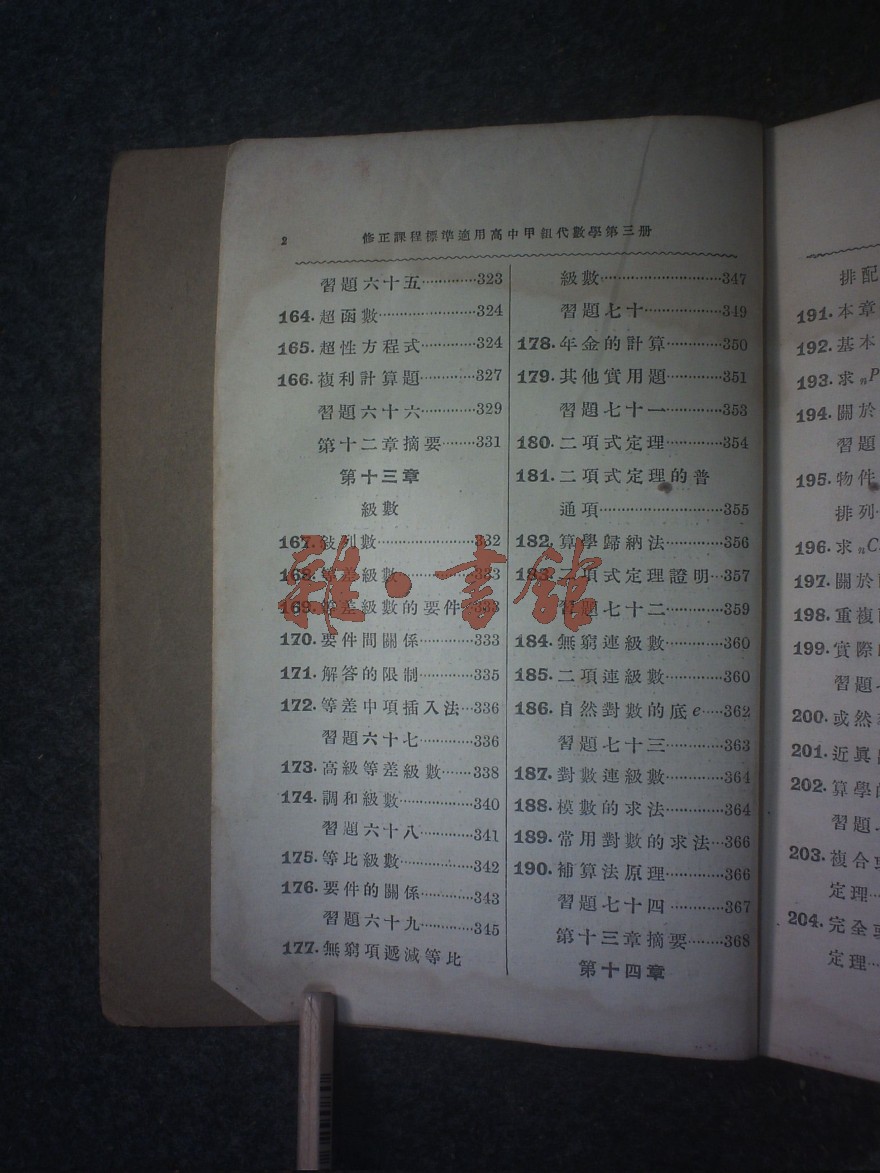 2
修正課程標準適用高中甲組代數學第三册
習題六十五············323
164.超函數··················324
165.超性方程式············324
166.複利計算題············327
習題六十六············329
第十二章摘要········331
第十三章
級數
167.敍列數··················332
168.等差級數···············333
169.等差級數的要件···333
170.要件間關係············333
171.解答的限制············335
172.等差中項插入法···336
習題六十七············336
173.高級等差級數·······338
174.調和級數···············340
習題六十八············341
175.等比級數···············342
176.要件的關係············343
習題六十九············345
177.無窮項遞減等比
級數··························347
習題七十···············349
178.年金的計算············350
179.其他實用題············351
習題七十一············353
180.二項式定理············354
181.二項式定理的普
通項···························355
182.算學歸納法············356
183.二項式定理證明···357
習題七十二············359
184.無窮連級數············360
185.二項連級數············360
186.自然對數的底e·····362
習題七十三············363
187.對數連級數············364
188.模數的求法············364
189.常用對數的求法···366
190.補算法原理············366
習題七十四············367
第十三章摘要········368
第十四章
排配
191.本章
192.基本
193.求nP
194.關於
習題
195.物件
排列
196.求nC
197.關於
198.重複
199.實際
習題
200.或然
201.近眞
202.算學
習題
203.複合
定理
204.完全
定理
雜·書館